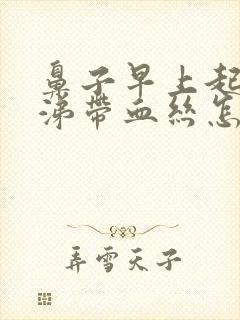 鼻子早上起
涕带血丝怎
弄雪天子